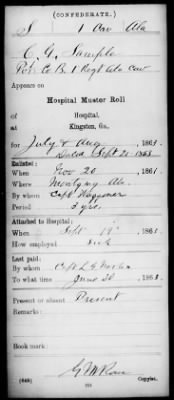 (CONFEDERATE.)
S 1 Cav Ala
C. G. Sample
Pvt Co B 1 Regt Ala Cav
Appears on
Hospital Muster Roll
of Hospital,
at Kingston, Ga.,
for July & Aug, 1863.
Dated Sept 20 1863
Enlisted:
When Nov 20, 1861
Where Montgy Ala.
By whom Capt
Period 3 yrs.
Attached to Hospital:
When Sept 19, 1863.
How employed Sick
Last paid:
By whom Capt L G
To what time June 30, 1863.
Present or absent Present
Remarks:
Book mark:
(648)
Copyist.